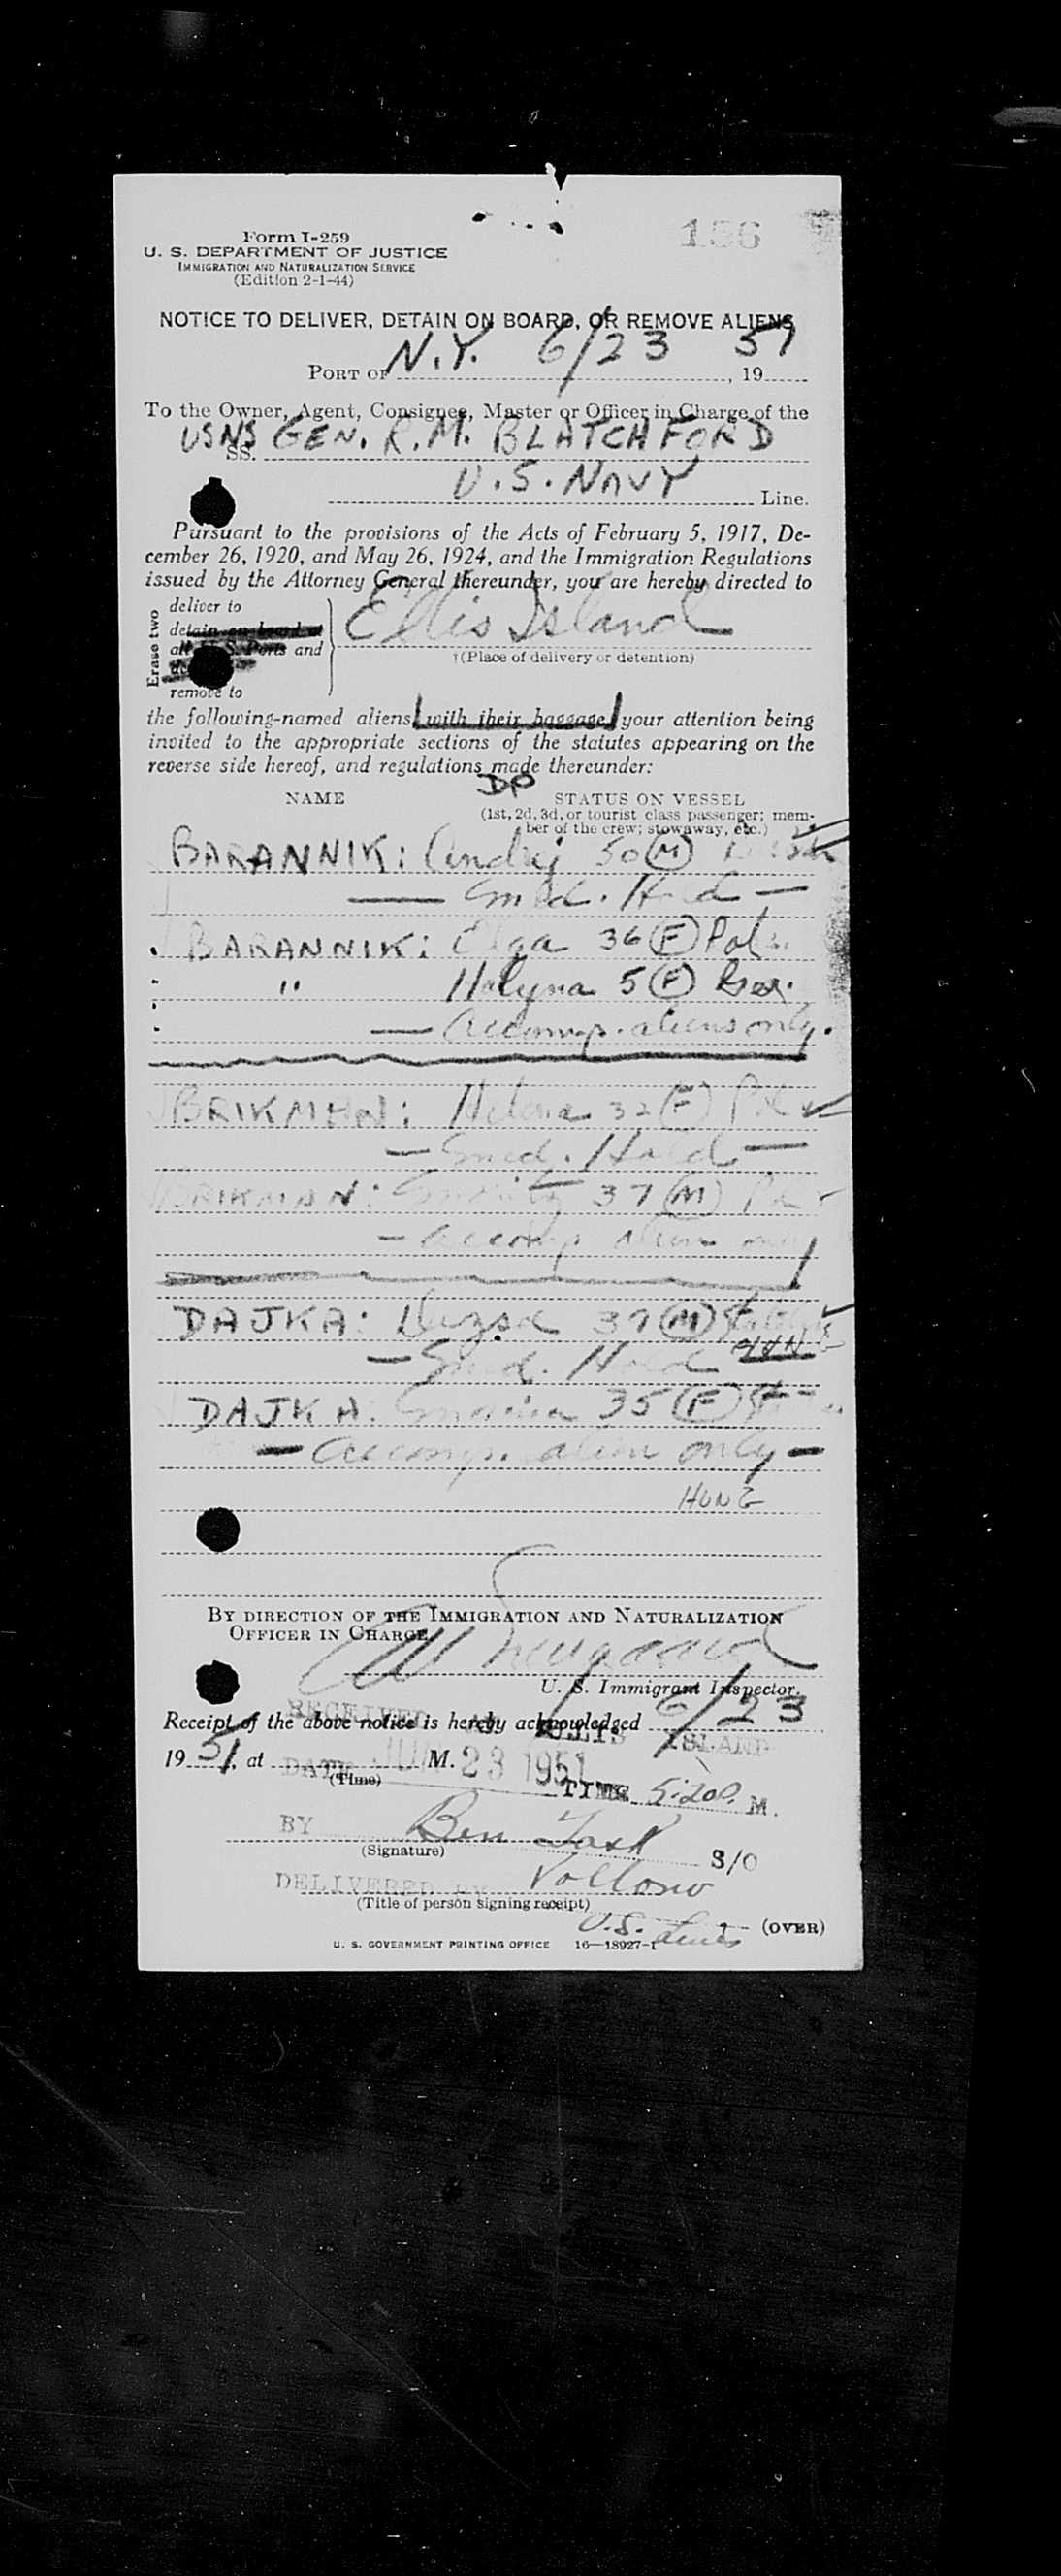 156
Form I-259
U. S. DEPARTMENT OF JUSTICE
IMMIGRATION AND NATURALIZATION SERVICE
(Edition 2-1-44)
NOTICE TO DELIVER, DETAIN ON BOARD, OR REMOVE ALIENS
PORT OF N.Y. 6/23, 19 51
To the Owner, Agent, Consignee, Master or Officer in Charge of the
SS. USNS GEN. R.M. BLATCHFORD
U.S. NAVY Line.
Pursuant to the provisions of the Acts of February 5, 1917, De-
cember 26, 1920, and May 26, 1924, and the Immigration Regulations
issued by the Attorney General thereunder, you are hereby directed to
Erase two
deliver to
detain on board at
all U. S. Ports and
remove to
Ellis Island
†(Place of delivery or detention)
the following-named aliens with their baggage your attention being
invited to the appropriate sections of the statutes appearing on the
reverse side hereof, and regulations made thereunder:
DP
NAME STATUS ON VESSEL
(1st, 2d, 3d, or tourist class passenger; mem-
ber of the crew; stowaway, etc.)
BARANNIK: Andrij 50 (M)
— Med. Hold —
BARANNIK: Olga 36 (F) Pol.
" Halyna 5 (F) Ger.
— Accomp. aliens only.
BRIKMAN: Helena 32 (F) Pol
— Med. Hold —
BRIKMAN: 37 (M)
— accomp alien only
DAJKA: Dezso 37 (M)
— Med. Hold HUNG
DAJKA: 35 (F)
— Accomp. alien only —
HUNG
BY DIRECTION OF THE IMMIGRATION AND NATURALIZATION
OFFICER IN CHARGE
U. S. Immigrant Inspector.
RECEIVED AT ELLIS ISLAND
Receipt of the above notice is hereby acknowledged 6/23
19 51, at M.
(Time)
DATE JUN 23 1951 TIME 5:20 P. M.
BY Ben S/O
(Signature)
DELIVERED BY
(Title of person signing receipt)
U.S. Lines
(OVER)
U. S. GOVERNMENT PRINTING OFFICE 16—18927-1